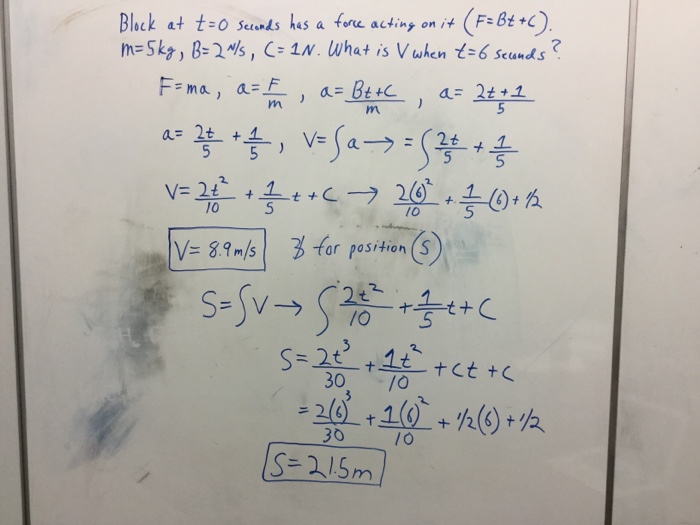 Block at t=0 seconds has a force acting on it (F=Bt+C).
m=5kg, B=2 N/s, C=1N. What is V when t=6 seconds?
F=ma, a=F/m, a=Bt+C/m, a=2t+1/5
a=2t/5+1/5, V=∫a→=∫2t/5+1/5
V=2t²/10+1/5t+C→2(6)²/10+1/5(6)+1/2
V=8.9m/s for position (s)
S=∫V→∫2t²/10+1/5t+C
S=2t³/30+1t²/10+Ct+C
=2(6)³/30+1(6)²/10+1/2(6)+1/2
S=21.5m